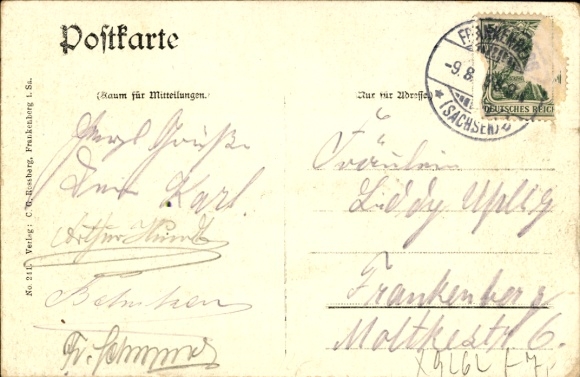 Postkarte
(Raum für Mitteilungen.
Nur für Adresse)
FRANKENBERG
-9.8.
* (SACHSEN)
DEUTSCHES REICH
No. 211. Verlag: C. G. Rossberg, Frankenberg i. Sa.
Herzl Grüße
Dein Karl.
Arthur
Fr.
Fräulein
Liddy
Frankenberg
Moltkestr 6.